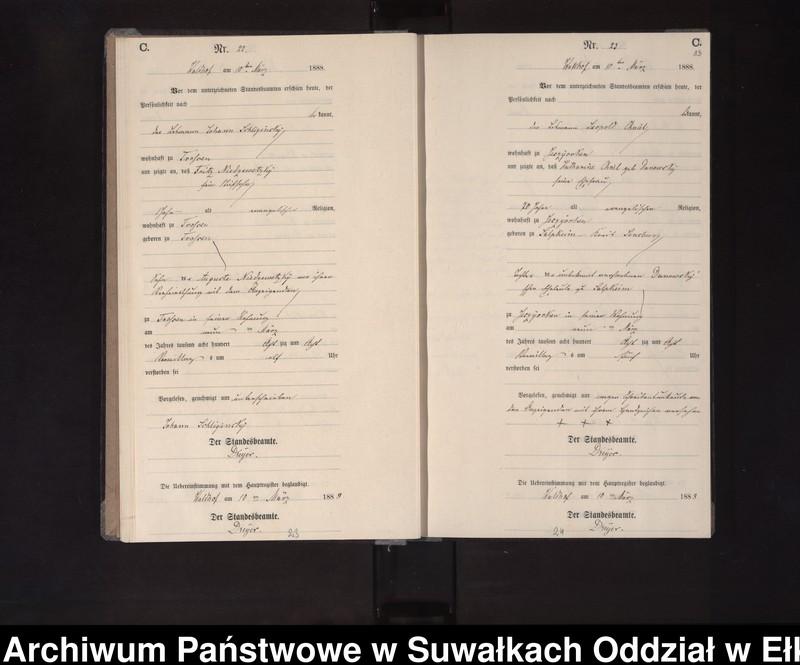 C. Nr. 22.
Waldhof am 10ten März 1888.
Vor dem unterzeichneten Standesbeamten erschien heute, der
Persönlichkeit nach
kannt,
der Johann
wohnhaft zu Trossen
und zeigte an, daß Fritz Niedzwetzky
alt evangelischer Religion,
wohnhaft zu Trossen
geboren zu Trossen
Sohn der Auguste Niedzwetzky vor ihrer
Verheirathung mit dem Anzeigenden,
zu Trossen in seiner Wohnung
am neun ten März
des Jahres tausend acht hundert acht zig und acht
Vormittags um elf Uhr
verstorben sei
Vorgelesen, genehmigt und unterschrieben
Johann
Der Standesbeamte.
Dreyer.
Die Uebereinstimmung mit dem Hauptregister beglaubigt.
Waldhof am 10 ten März 188 8
Der Standesbeamte.
Dreyer.
23
Nr. 23 C.
23
Waldhof am 10ten März 1888.
Vor dem unterzeichneten Standesbeamten erschien heute, der
Persönlichkeit nach
kannt,
der Leopold
wohnhaft zu
und zeigte an, daß Katharine geb Danowsky
seine Ehefrau,
28 Jahre alt evangelischer Religion,
wohnhaft zu
geboren zu Kreis Sensburg,
Tochter der unbekannt verstorbenen Danowsky
Eheleute zu
zu in seiner Wohnung
am neun ten März
des Jahres tausend acht hundert acht zig und acht
Vormittags um fünf Uhr
verstorben sei
Vorgelesen, genehmigt und wegen Schreibensunkunde von
dem Anzeigenden mit Handzeichen versehen
+ + +
Der Standesbeamte.
Dreyer.
Die Uebereinstimmung mit dem Hauptregister beglaubigt.
Waldhof am 10 ten März 188 8
Der Standesbeamte.
Dreyer.
24
Archiwum Państwowe w Suwałkach Oddział w Ełk